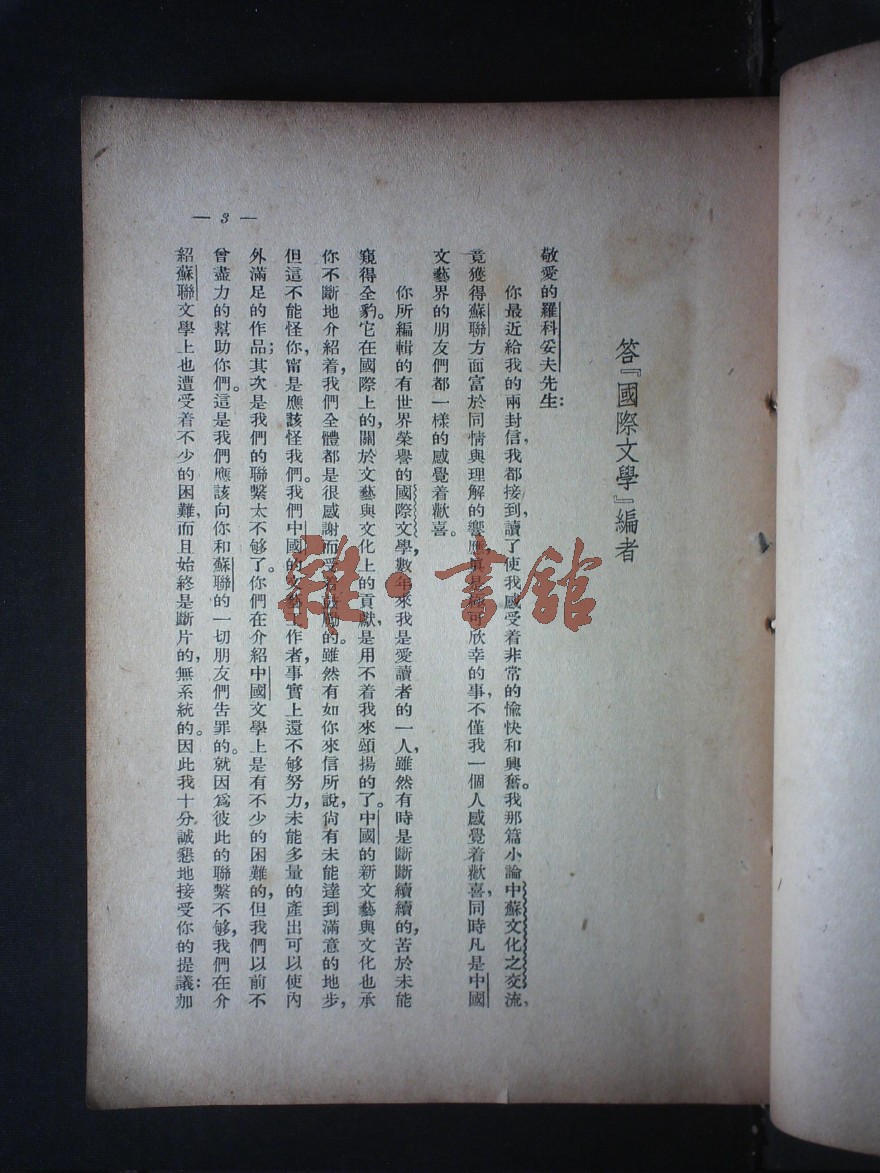 答『國際文學』編者
敬愛的羅科妥夫先生：
你最近給我的兩封信，我都接到，讀了使我感受着非常的愉快和興奮。我那篇小論中蘇文化之交流，
竟獲得蘇聯方面富於同情與理解的響應，眞是可欣幸的事，不僅我一個人感覺着歡喜，同時凡是中國
文藝界的朋友們都一樣的感覺着歡喜。
你所編輯的有世界榮譽的國際文學，數年來我是愛讀者的一人，雖然有時是斷斷續續的，苦於未能
窺得全豹。它在國際上的，關於文藝與文化上的貢獻，是用不着我來頌揚的了。中國的新文藝與文化也承
你不斷地介紹着，我們全體都是很感謝而受着鼓勵的。雖然有如你來信所說，尙有未能達到滿意的地步，
但這不能怪你，甯是應該怪我們。我們中國的文藝工作者，事實上還不够努力，未能多量的產出可以使內
外滿足的作品；其次是我們的聯繫太不够了。你們在介紹中國文學上是有不少的困難的，但我們以前不
曾盡力的幫助你們。這是我們應該向你和蘇聯的一切朋友們吿罪的。就因爲彼此的聯繫不够，我們在介
紹蘇聯文學上也遭受着不少的困難，而且始終是斷片的，無系統的。因此我十分誠懇地接受你的提議：加
— 3 —
雜·書館